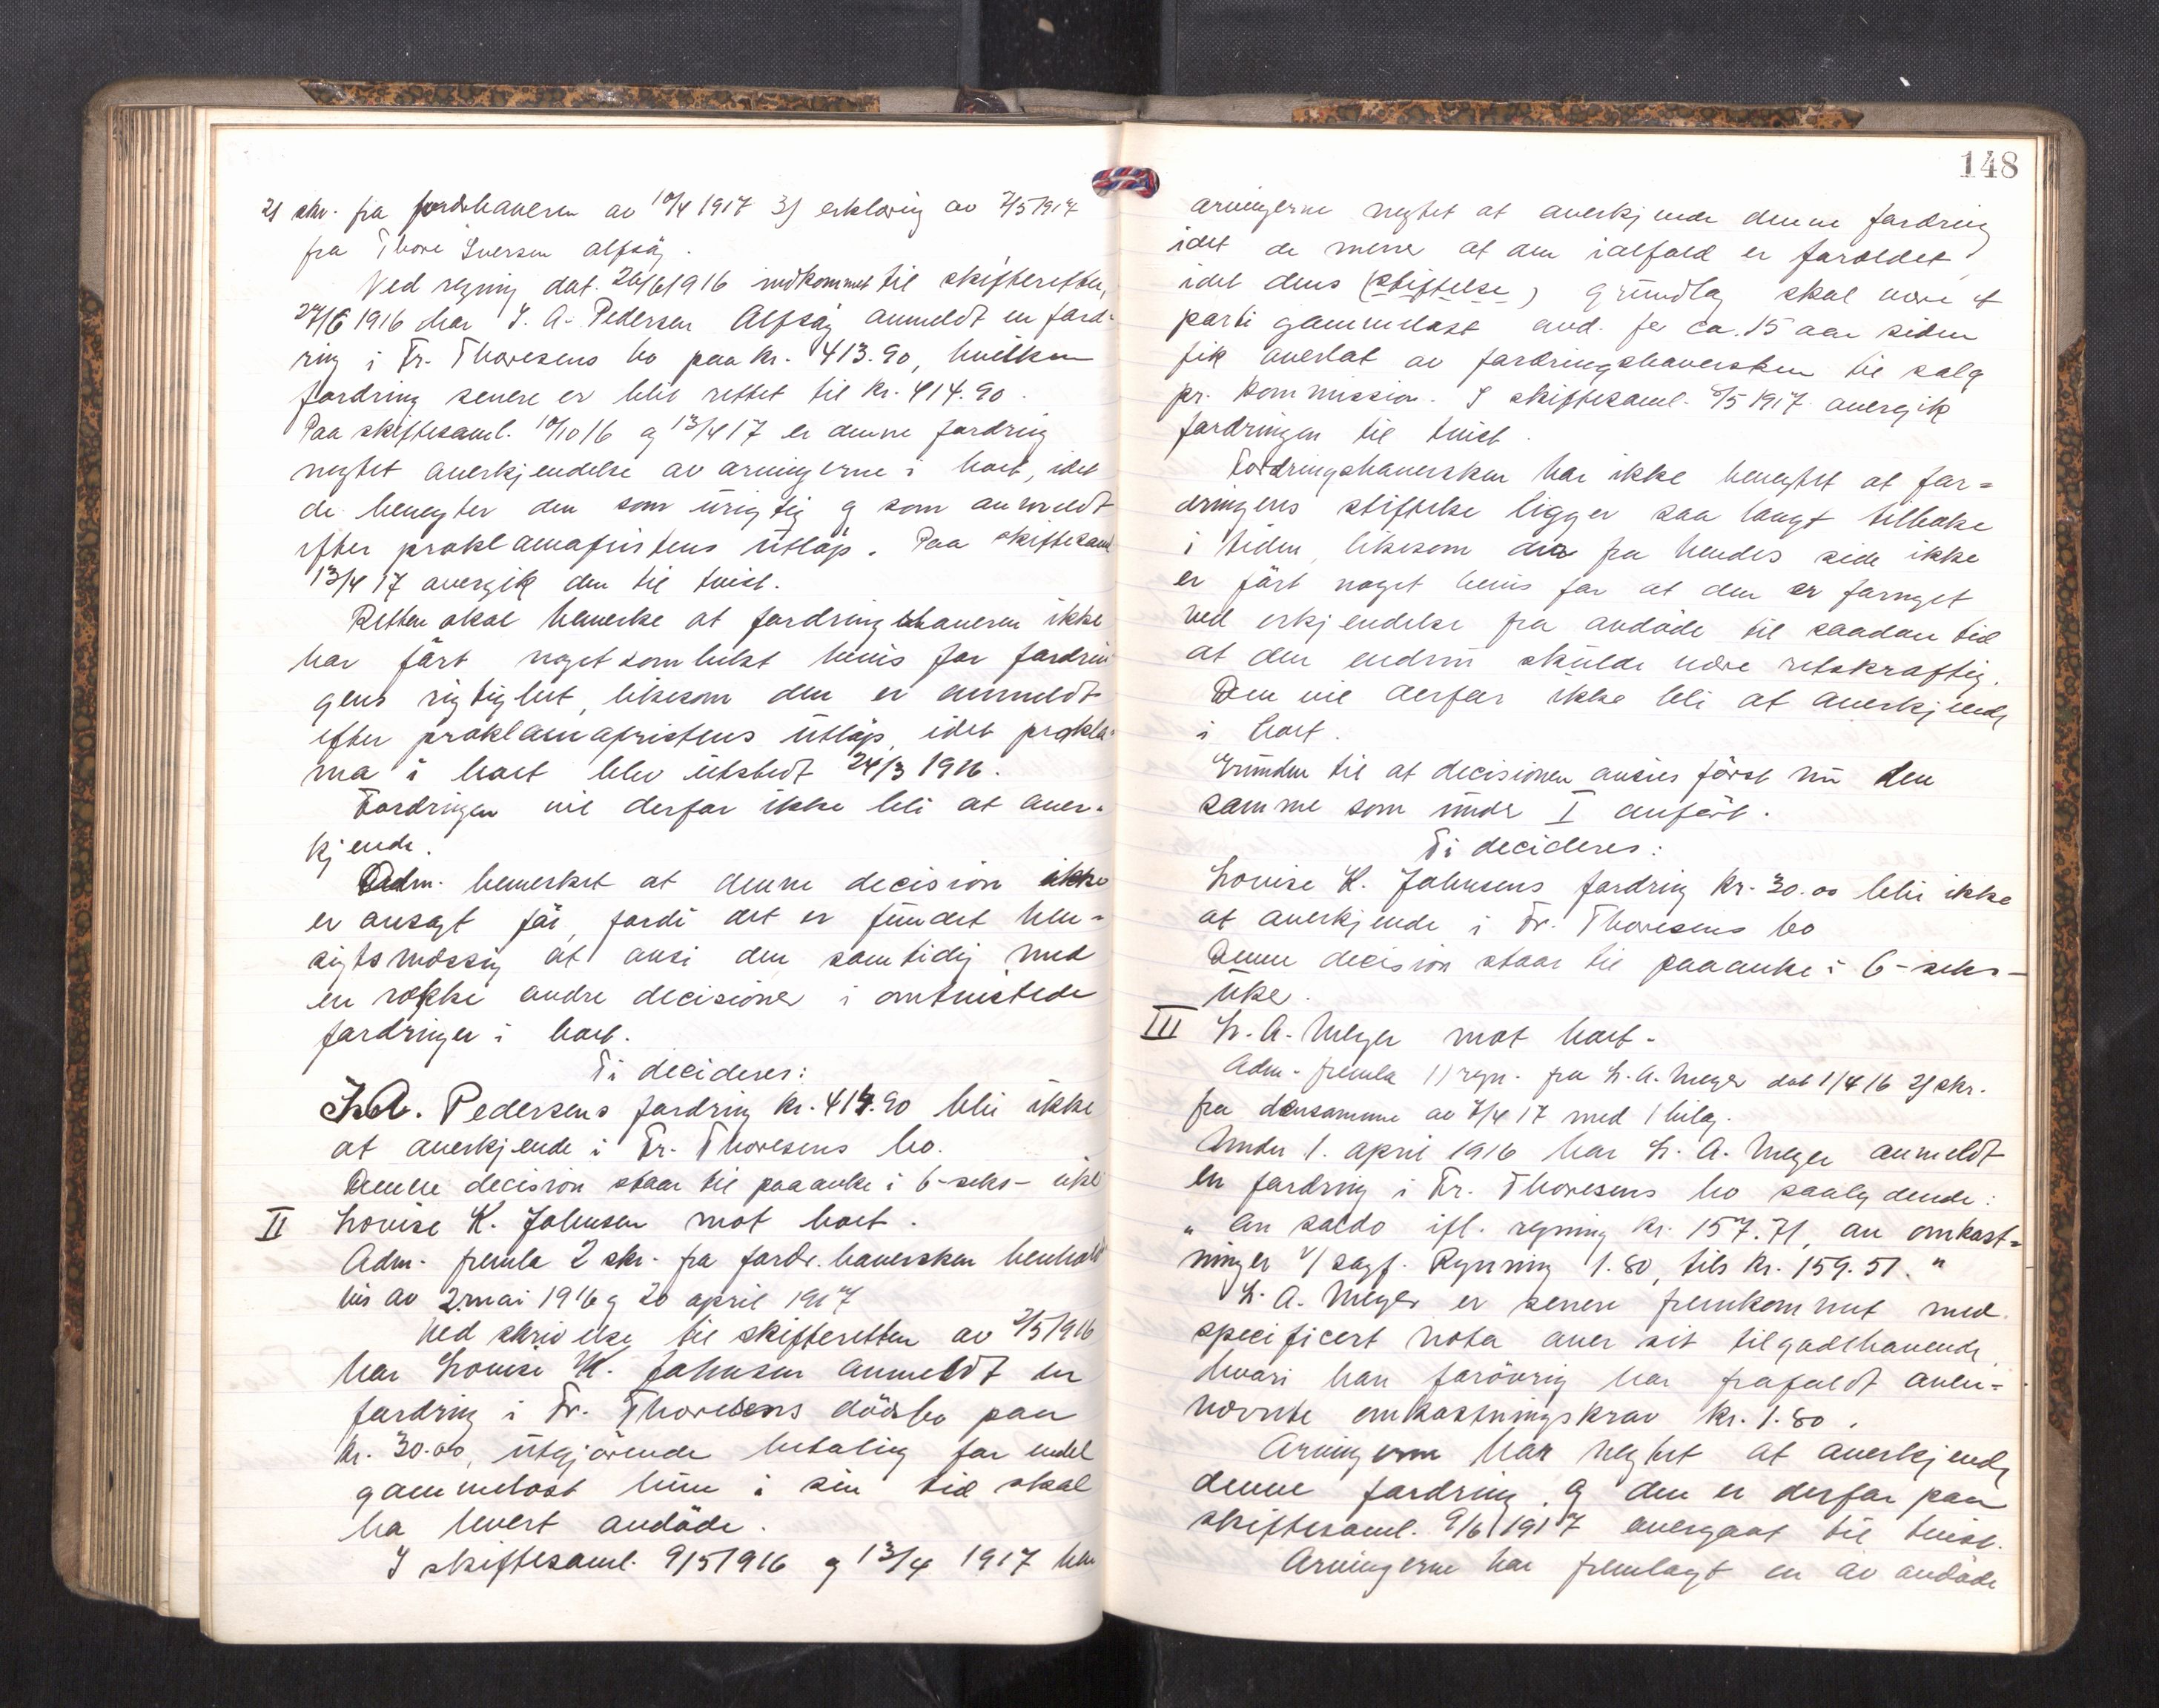 2) skr. fra fordrhaveren av 10/4 1917 3) erklæring av 7/5 1917
fra Thore Iversen Alfsåg.
Ved regning dat. 26/6 1916 indkommet til skifteretten,
27/6 1916 har J. A. Pedersen Alfsåg anmeldt en ford-
ring i Fr. Thoresens bo paa kr. 413.90, hvilken
fordring senere er blit rettet til kr. 414.90.
Paa skiftesaml. 10/10 16 og 13/4 17 er denne fordring
negtet anerkjendelse av arvingerne i boet, idet
de benegter den som urigtig og som anmeldt
efter proklamafristens utløp. Paa skiftesaml
13/4 17 overgik den til tvist.
Retten skal bemerke at fordringshaveren ikke
har ført noget somhelst bevis for fordrin
gens rigtighet, likesom den er anmeldt
efter proklamafristens utløp, idet prokla-
ma i boet blev utstedt 24/3 1916.
Fordringen vil derfor ikke bli at aner-
kjende.
Adm. bemerket at denne decision ikke
er avsagt før, fordi det er fundet hen-
sigtsmæssig at avsi den samtidig med
en række andre decisioner i omtvistede
fordringer i boet.
Ti decideres:
J.A. Pedersens fordring kr. 414.90 blir ikke
at anerkjende i Fr. Thoresens bo.
Denne decision staar til paaanke i 6-seks- uker
II Lovise K. Johnsen mot boet.
Adm. fremla 2 skr. fra fordr. haversken henholds
vis av 2. mai 1916 og 20 april 1917
Ved skrivelse til skifteretten av 2/5 1916
har Lovise K. Johnsen anmeldt en
fordring i Fr. Thoresens dødsbo paa
kr. 30.00, utgjørende betaling for endel
gammelost hun i sin tid skal
ha levert avdøde.
I skiftesaml. 9/5 1916 og 13/4 1917 har
148
arvingerne negtet at anerkjende denne fordring
idet de mener at den ialfald er foreldet,
idet dens (stiftelse) grundlag skal være et
parti gammelost avd. for ca. 15 aar siden
fik overlat av fordringshaversken til salg
pr. kommission. I skiftesaml. /5 1917 overgik
fordringen til tvist.
Fordringshaversken har ikke benegtet at for=
dringens stiftelse ligger saa langt tilbake
i tiden, likesom der fra hendes side ikke
er ført noget bevis for at den er fornyet
ved erkjendelse fra avdøde til saadan tid
at den endnu skulde være retskraftig.
Den vil derfor ikke bli at anerkjende
i boet.
Grunden til at decisionen avsies først nu den
samme som under I anført.
Ti decideres:
Lovise K. Johnsens fordring kr. 30.00 blir ikke
at anerkjende i Fr. Thoresens bo
Denne decision staar til paaanke i 6-seks-
uker.
III L. A. Meyer mot boet.
Adm. fremla 1) regn. fra L. A. Meyer dat 1/4 16 2) skr.
fra densamme av 7/4 17 med 1 bilag.
Under 1. april 1916 har L. A. Meyer anmeldt
en fordring i Fr. Thoresens bo saalydende:
" An saldo ifl. regning kr. 157.71, an omkost=
ninger v/ sagf. Rynning 1.80, tils kr. 159.51. "
L. A. Meyer er senere fremkommet med
specificert nota over sit tilgodehavende,
hvori han forøvrig har frafaldt oven=
nævnte omkostningskrav kr. 1.80.
Arvingerne har negtet at anerkjende
denne fordring, og den er derfor paa
skiftesaml. 9/6 1917 overgaat til tvist.
Arvingerne har fremlagt en av avdøde